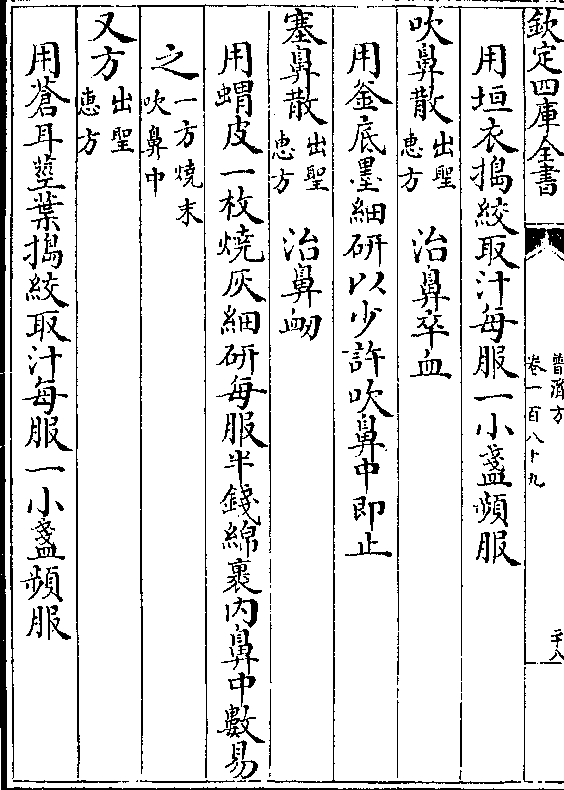 欽定四庫全書
普濟方
卷一百八十九
二十八
用垣衣搗絞取汁每服一小盞頻服
吹鼻散出聖惠方 治鼻卒血
用釜底墨細研以少許吹鼻中即止
塞鼻散出聖惠方 治鼻衂
用蝟皮一枚燒灰細研每服半錢綿裹内鼻中數易
之一方燒末吹鼻中
又方出聖惠方
用蒼耳莖葉搗絞取汁每服一小盞頻服